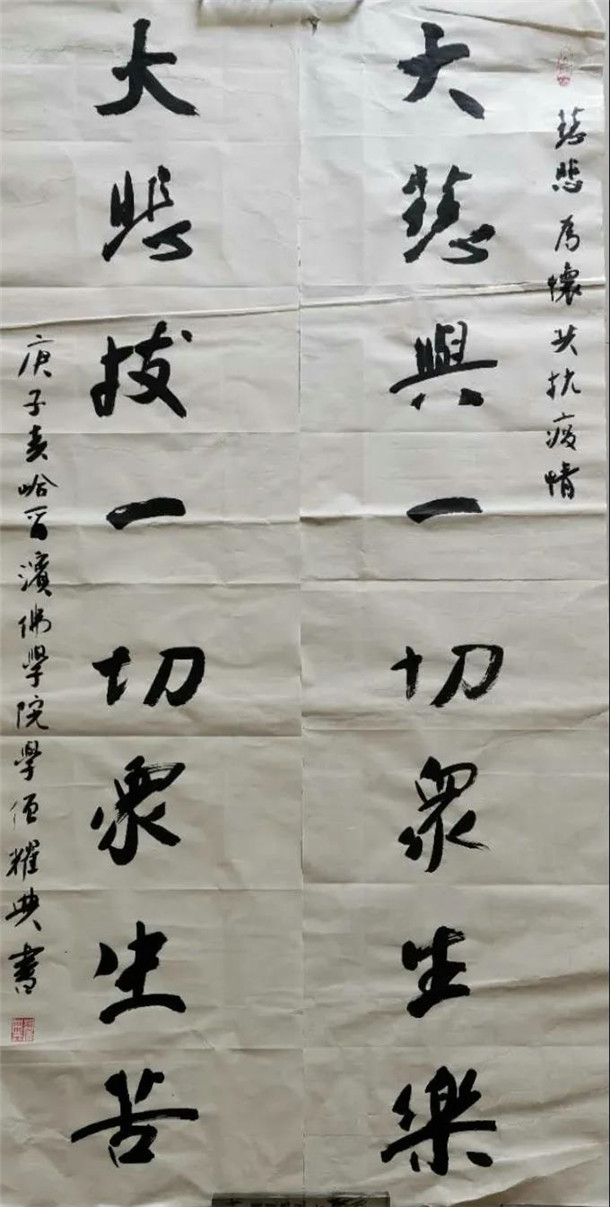 慈悲為懷共抗疫情
大慈與一切眾生樂
大悲拔一切眾生苦
庚子春哈爾濱佛學院學僧耀典書